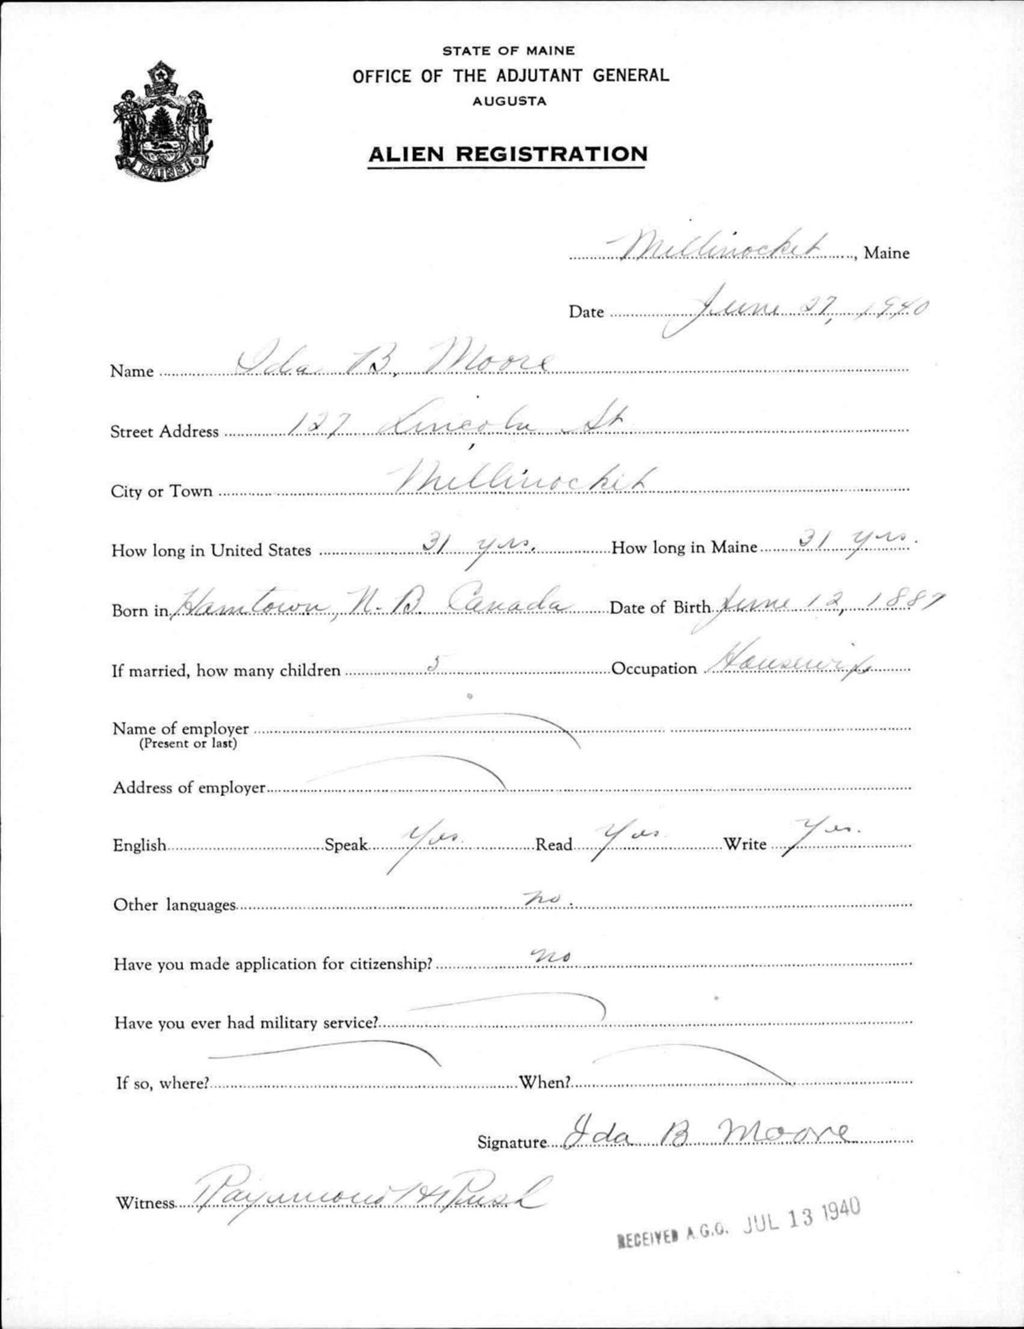 STATE OF MAINE
OFFICE OF THE ADJUTANT GENERAL
AUGUSTA
ALIEN REGISTRATION
MAINE
Millinocket, Maine
Date June 27, 1940
Name Ida B. Moore
Street Address 127 Lincoln St
City or Town Millinocket
How long in United States 31 yrs. How long in Maine 31 yrs.
Born in Hamtown, N. B. Canada Date of Birth June 12, 1887
If married, how many children 5 Occupation Housewife
Name of employer
(Present or last)
Address of employer
English Speak Yes. Read Yes Write Yes.
Other languages no.
Have you made application for citizenship? no
Have you ever had military service?
If so, where? When?
Signature Ida B Moore
Witness Raymond H Rush
RECEIVED A.G.O. JUL 13 1940